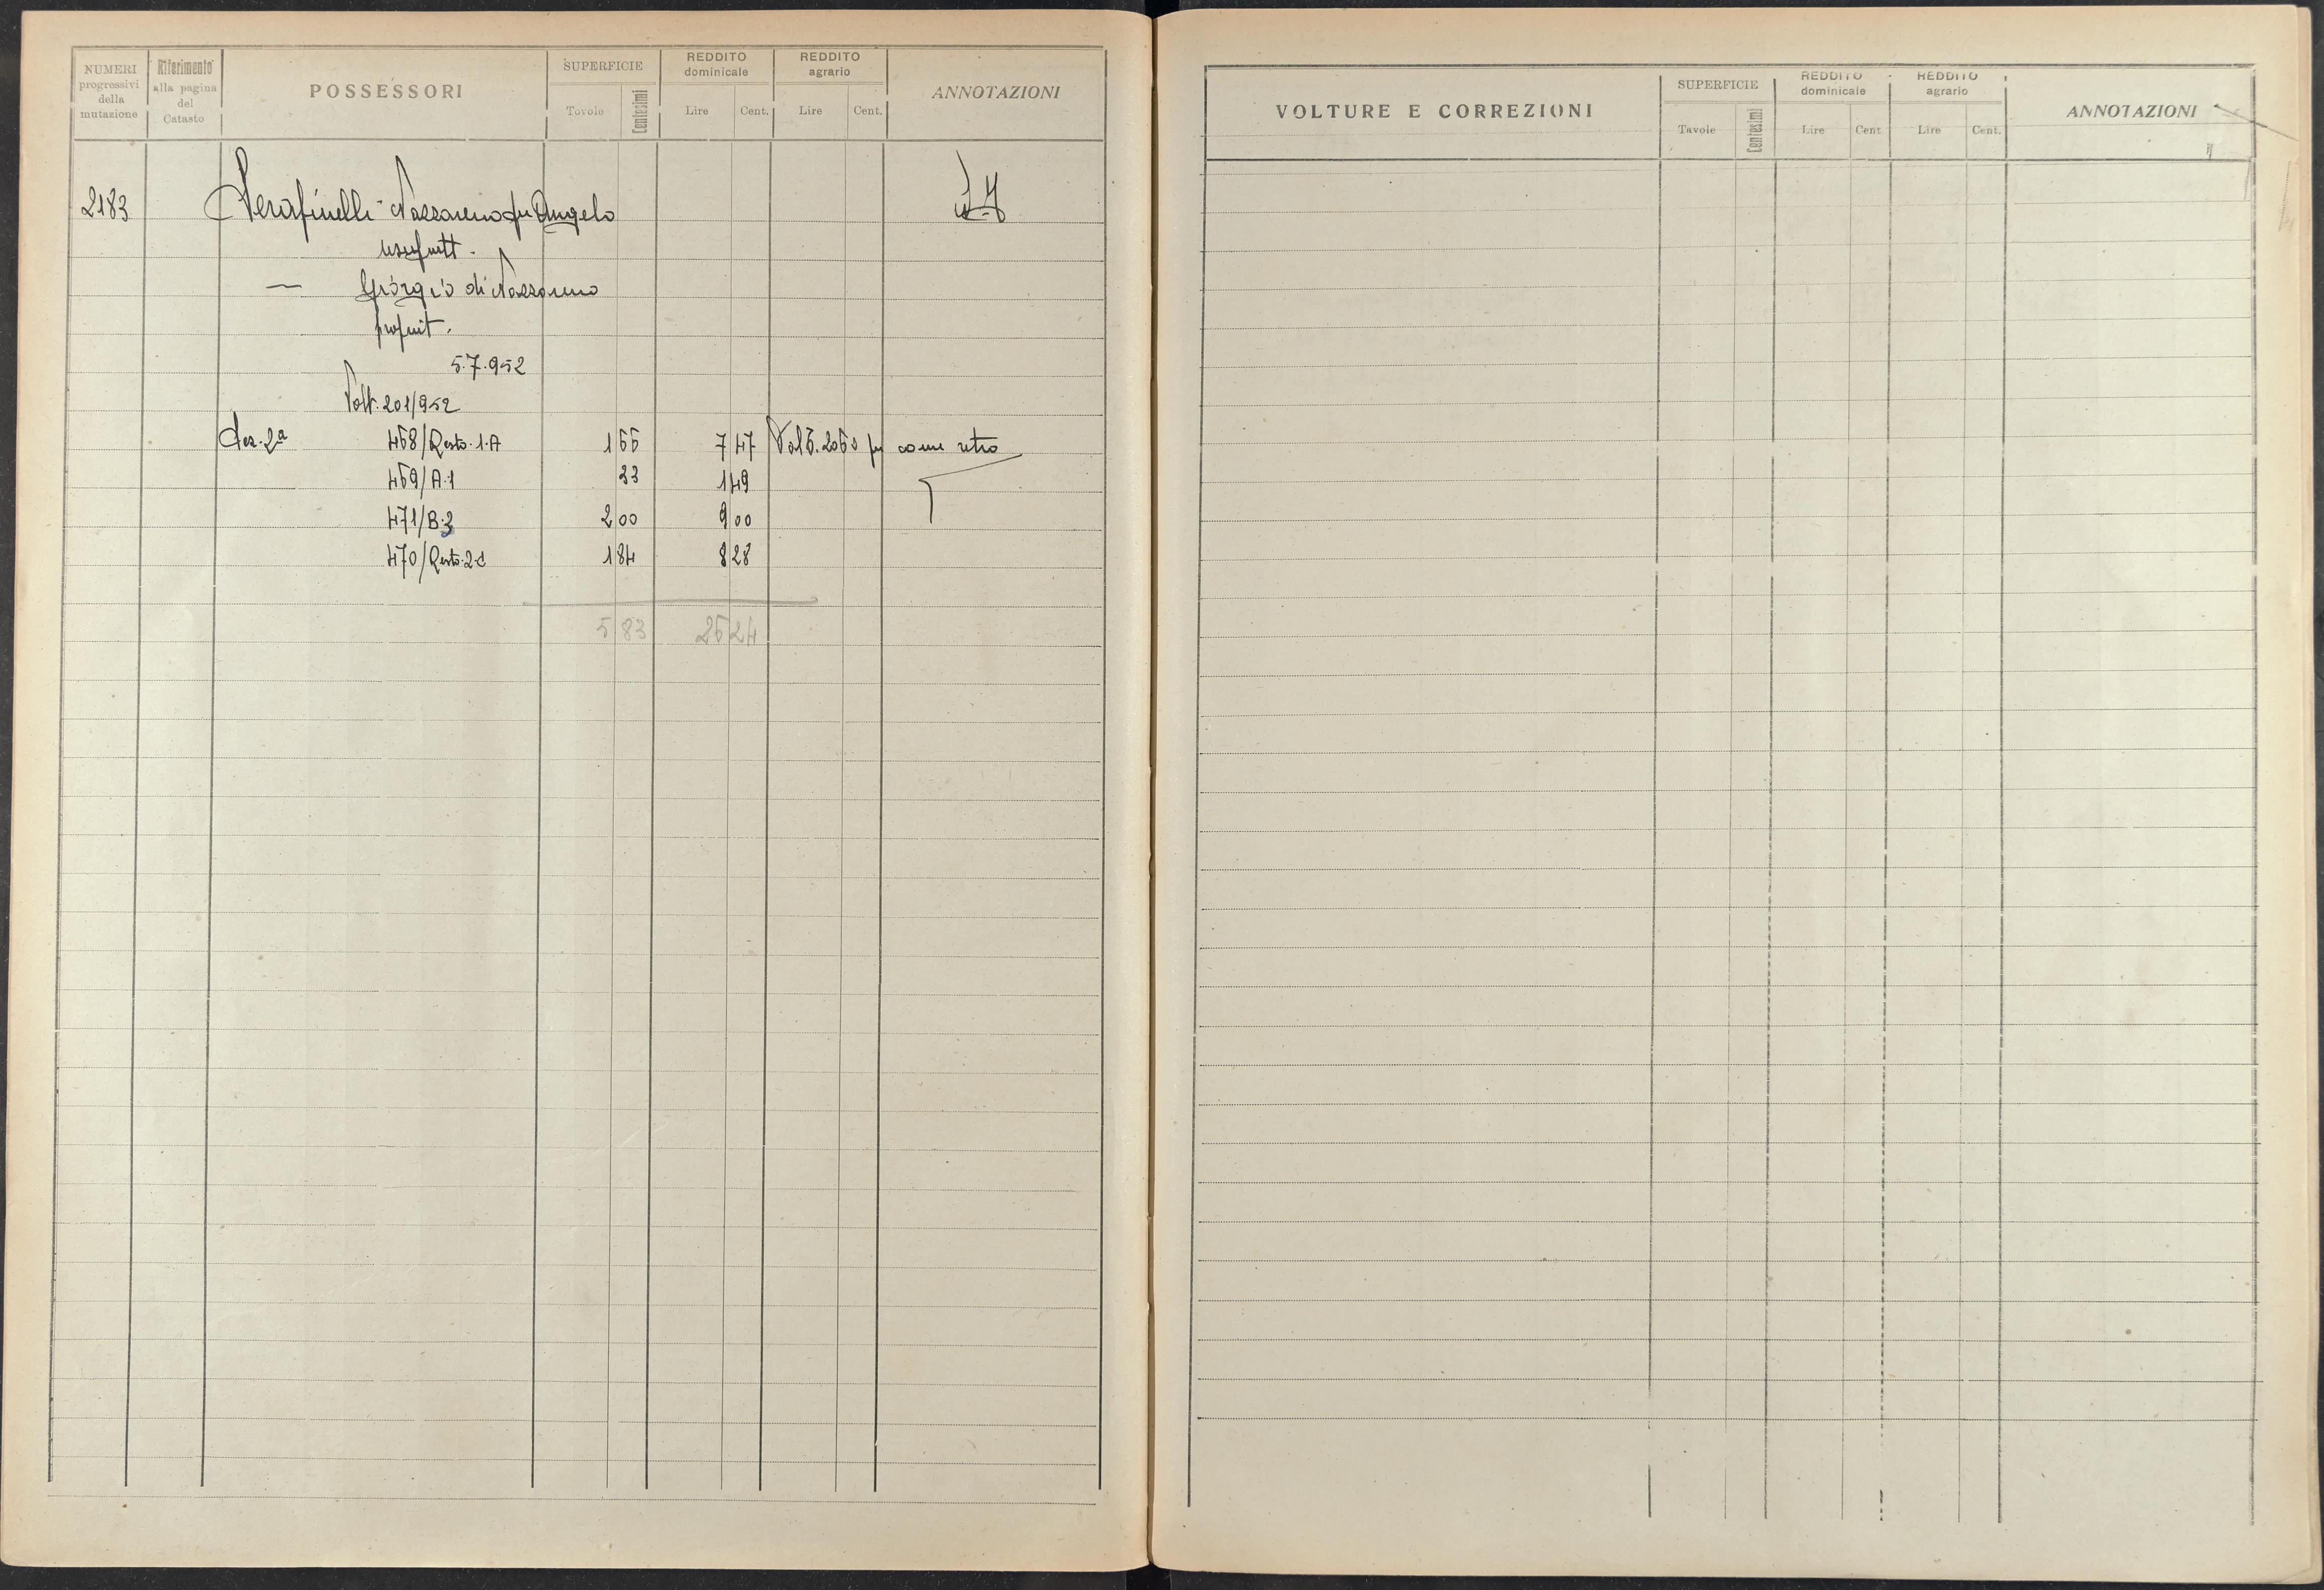 NUMERI progressivi della mutazione
Riferimento alla pagina del Catasto
POSSESSORI
SUPERFICIE
Tovole
Centesimi
REDDITO dominicale
Lire
Cent.
REDDITO agrario
Lire
Cent.
ANNOTAZIONI
2183 Serafinelli Nazzareno fu Angelo
usufrutt.
— Giorgio di Nazzareno
propriet.
5.7.952
Volt. 201/952
Sez. 2ª 468/Resto.1.A 1 66 7 47 2060 per come retro
469/A.1 33 1 49
471/B.3 2 00 9 00
470/Resto.2.C 1 84 8 28
5 83 26 24
VOLTURE E CORREZIONI
SUPERFICIE
Tavole
Centesimi
REDDITO dominicale
Lire
Cent
REDDITO agrario
Lire
Cent.
ANNOTAZIONI